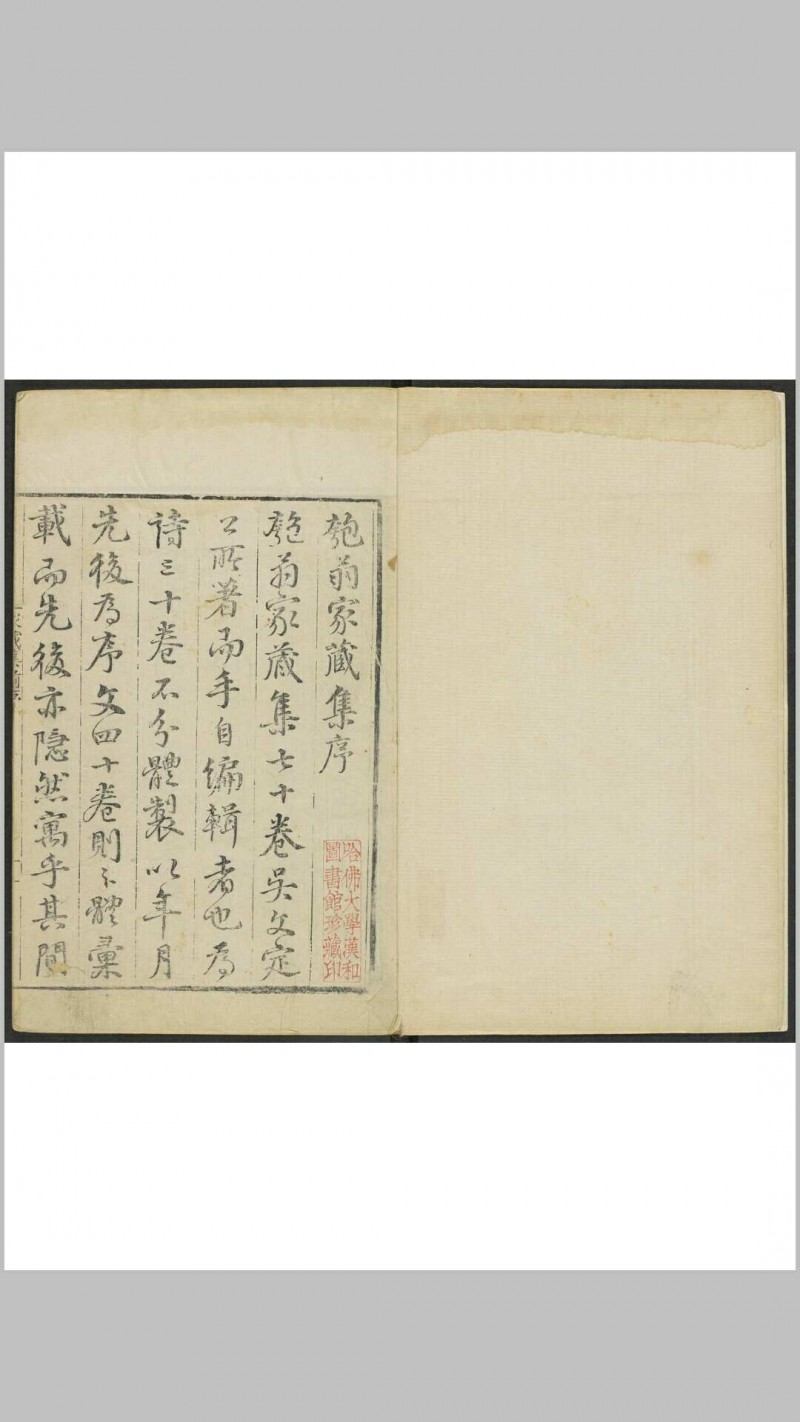 匏翁家藏集序
匏翁家藏集七十卷吳文定
公所著而手自編輯者也為
詩三十卷不分體製以年月
先後為序文四十卷則々體彙
載而先後亦隱然寓乎其間
哈佛大學漢和
圖書館珍藏印